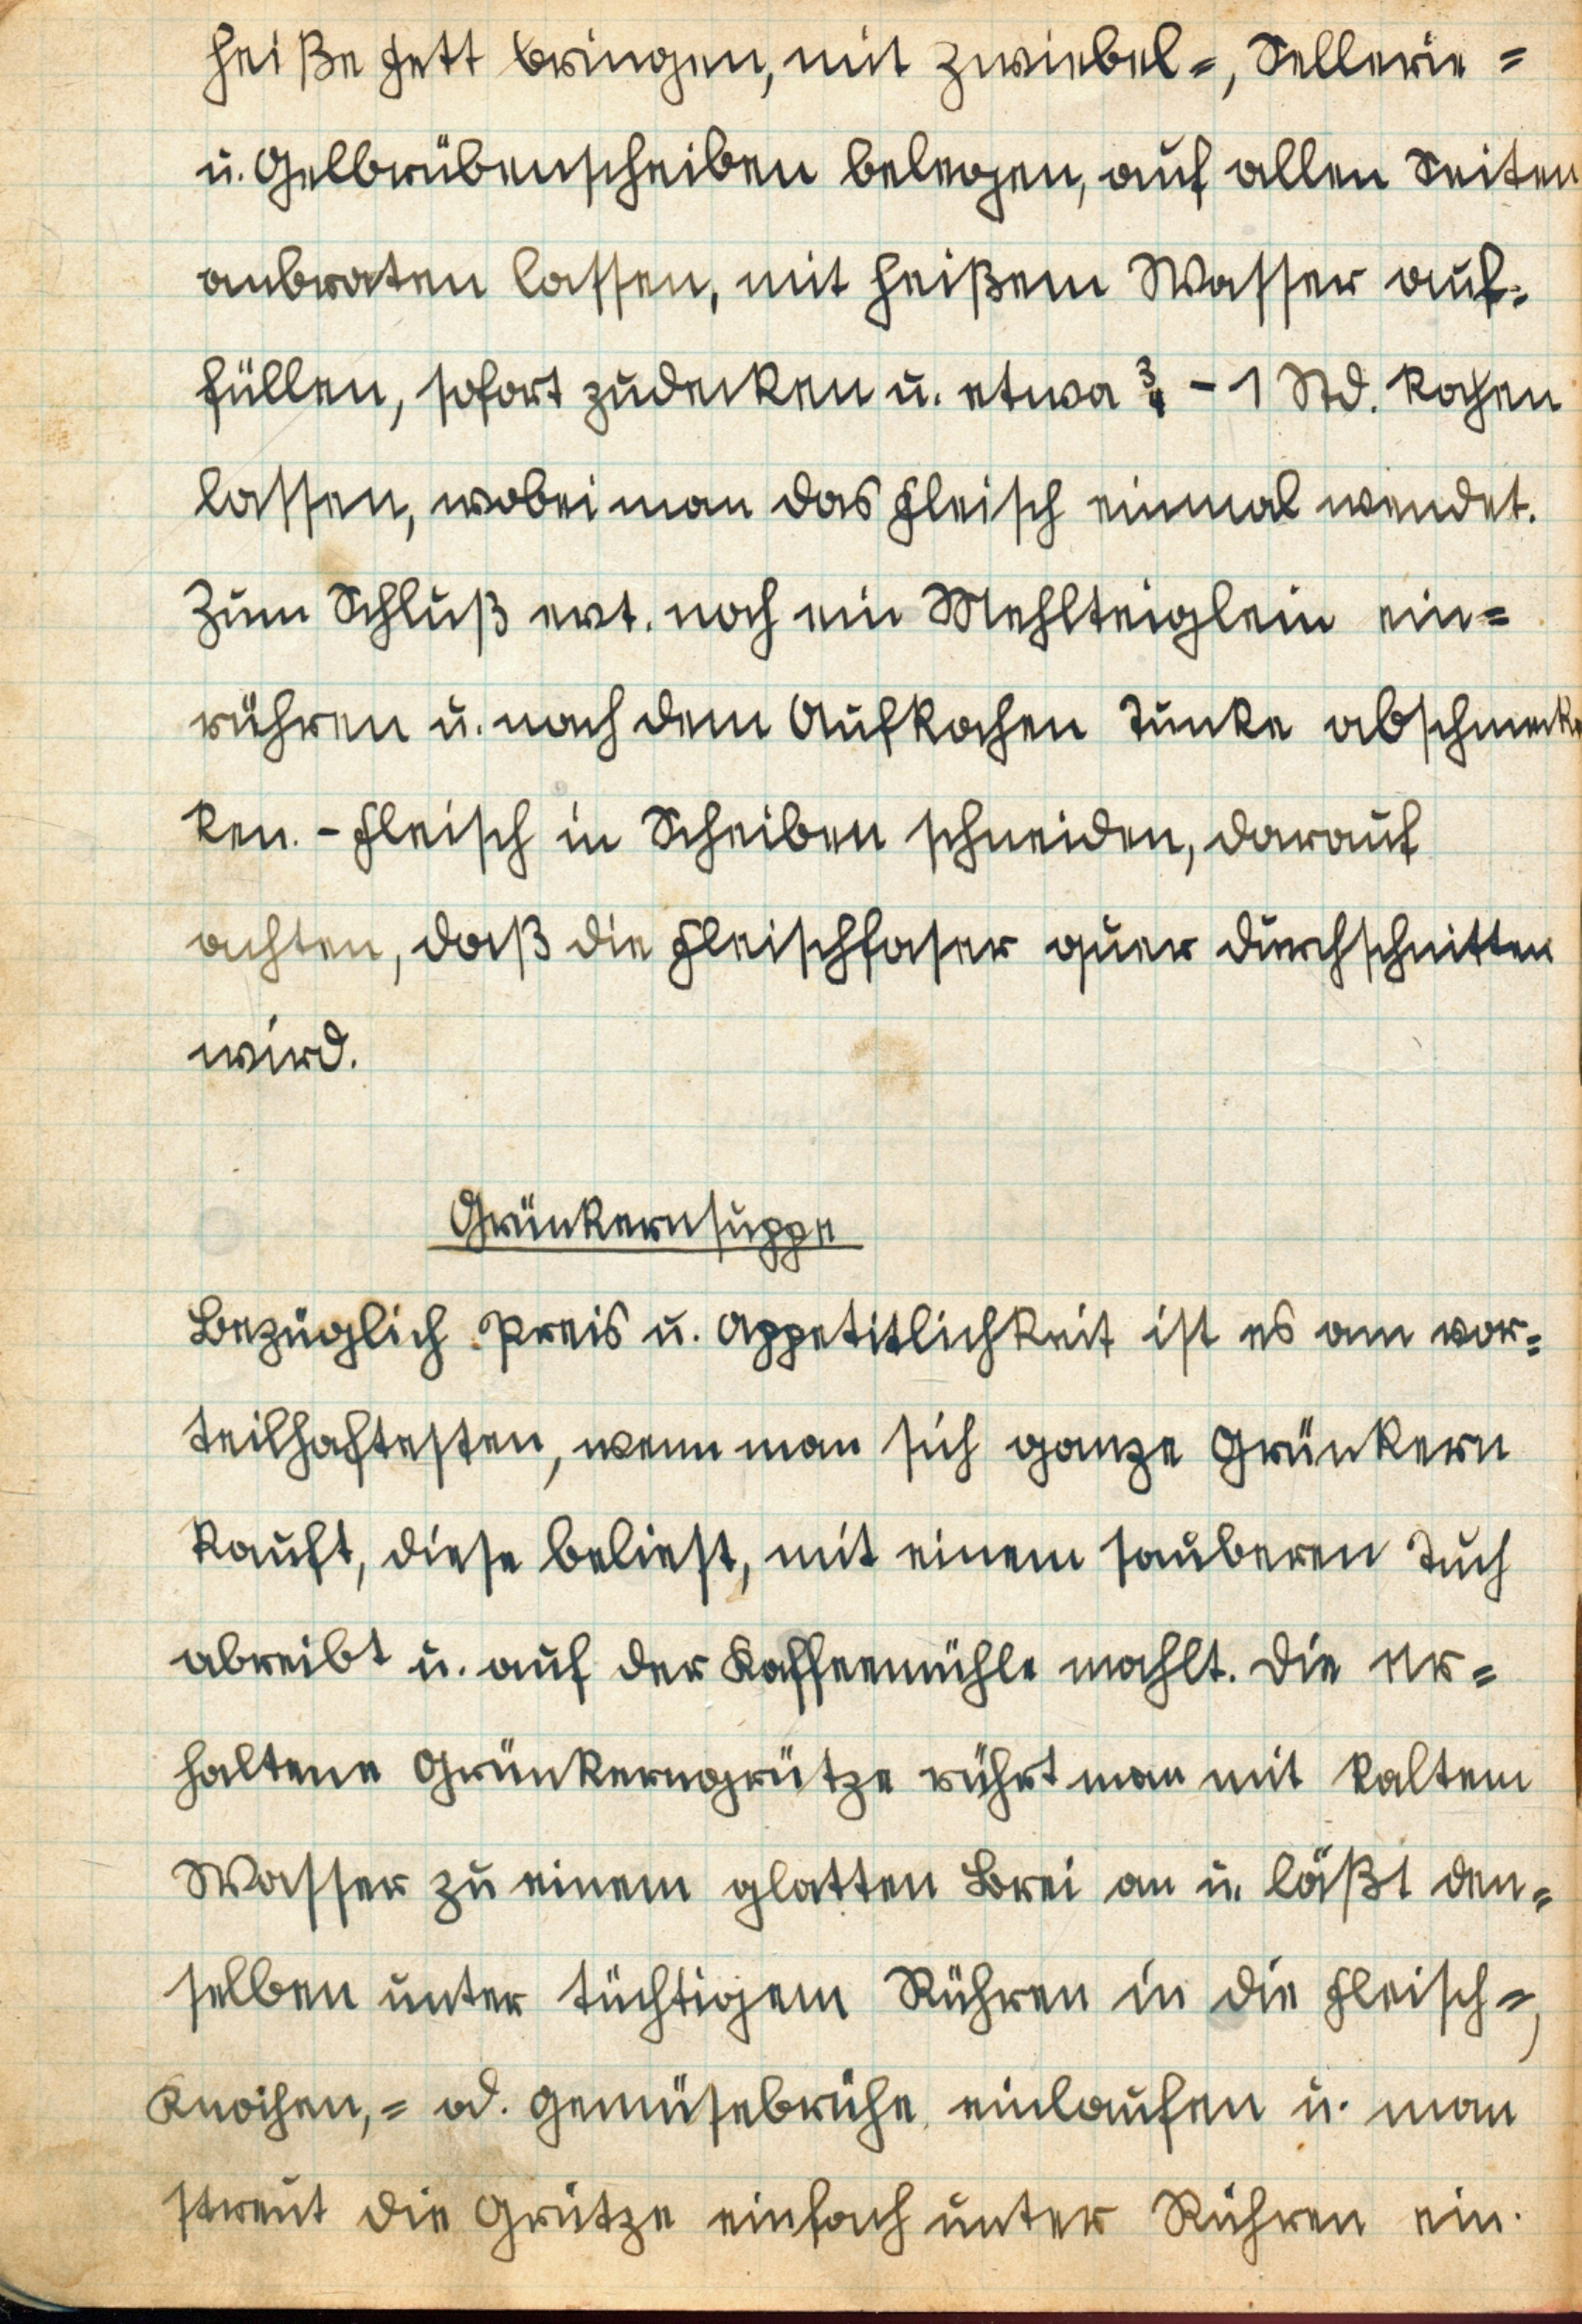 heiße Fett bringen, mit Zwiebel=, Sellerie=
u. Gelbrübenscheiben belegen, auf allen Seiten
anbraten lassen, mit heißem Wasser auf=
füllen, sofort zudecken u. etwa ¾ - 1 Std. kochen
lassen, wobei man das Fleisch einmal wendet.
Zum Schluß evt. noch ein Mehlteiglein ein=
rühren u. nach dem Aufkochen Tunke abschmeck
ken. - Fleisch in Scheiben schneiden, darauf
achten, daß die Fleischfaser quer durchschnitten
wird.
Grünkernsuppe
Bezüglich Preis u. Appetitlichkeit ist es am vor=
teilhaftesten, wenn man sich ganze Grünkern
kauft, diese beliest, mit einem sauberen Tuch
abreibt u. auf der Kaffeemühle mahlt. Die er=
haltene Grünkerngrütze rührt man mit kaltem
Wasser zu einem glatten Brei an u. läßt den=
selben unter tüchtigem Rühren in die Fleisch=,
Knochen,= od. Gemüsebrühe einlaufen u. man
streut die Grütze einfach unter Rühren ein.